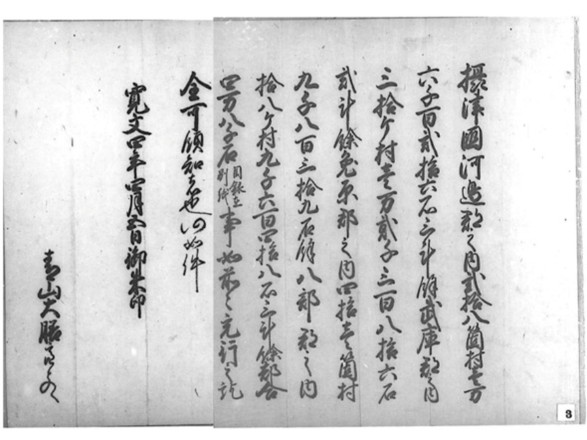 摂津國河邊郡之内弐拾八箇村壱万
六千百弐拾六石三斗餘武庫郡之内
三拾ケ村壱万弐千三百八拾六石
弐斗餘菟原郡之内四拾壱箇村
九千八百三拾九石餘八部郡之内
拾八ケ村九千六百四拾八石三斗餘都合
四万八千石目録在別紙事如前々充行之訖
全可領知者也仍如件
寛文四年四月五日御朱印
青山大膳
3